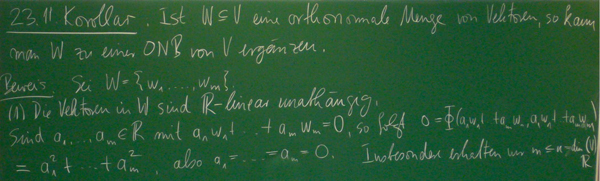 23.11. Korollar. Ist W ⊆ V eine orthonormale Menge von Vektoren, so kann
man W zu einer ONB von V ergänzen.
Beweis. Sei W = {w₁, ..., wₘ}.
(1) Die Vektoren in W sind ℝ-linear unabhängig.
Sind a₁, ..., aₘ ∈ ℝ mit a₁w₁ + ... + aₘwₘ = 0, so folgt 0 = Φ(a₁w₁ + ... + aₘwₘ, a₁w₁ + ... + aₘwₘ)
= a₁² + ... + aₘ², also a₁ = ... = aₘ = 0. Insbesondere erhalten wir m ≤ n = dim_ℝ(V)